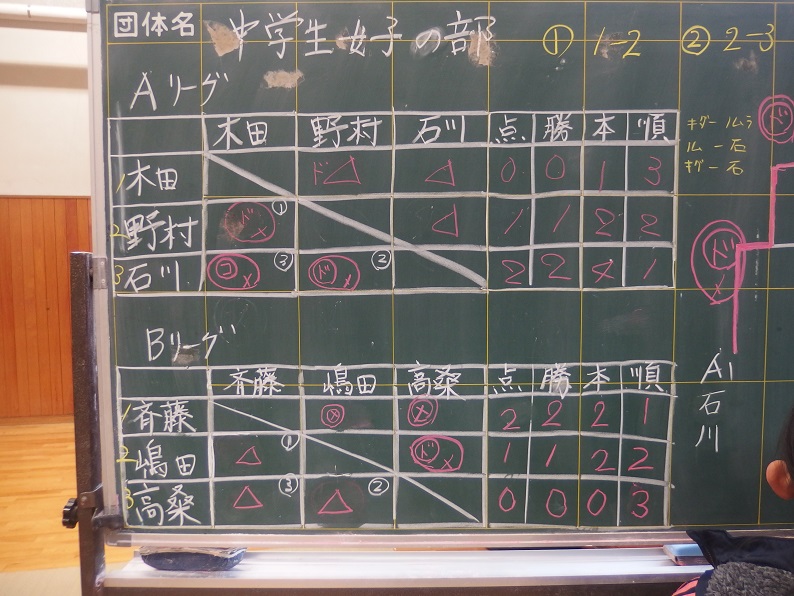 団体名 中学生女子の部 ① 1-2 ② 2-3
Aリーグ
木田 野村 石川 点 勝 本 順
1 木田 ド△ △ 0 0 1 3
2 野村 ドメ ① △ 1 1 2 2
3 石川 コメ ③ ドメ ② 2 2 4 1
キダ-ノムラ
ル-石
キダ-石
ド
ドメ
Bリーグ
斉藤 嶋田 高桑 点 勝 本 順
1 斉藤 メ メ 2 2 2 1
2 嶋田 △ ① ドメ 1 1 2 2
3 高桑 △ ③ △ ② 0 0 0 3
A1
石川